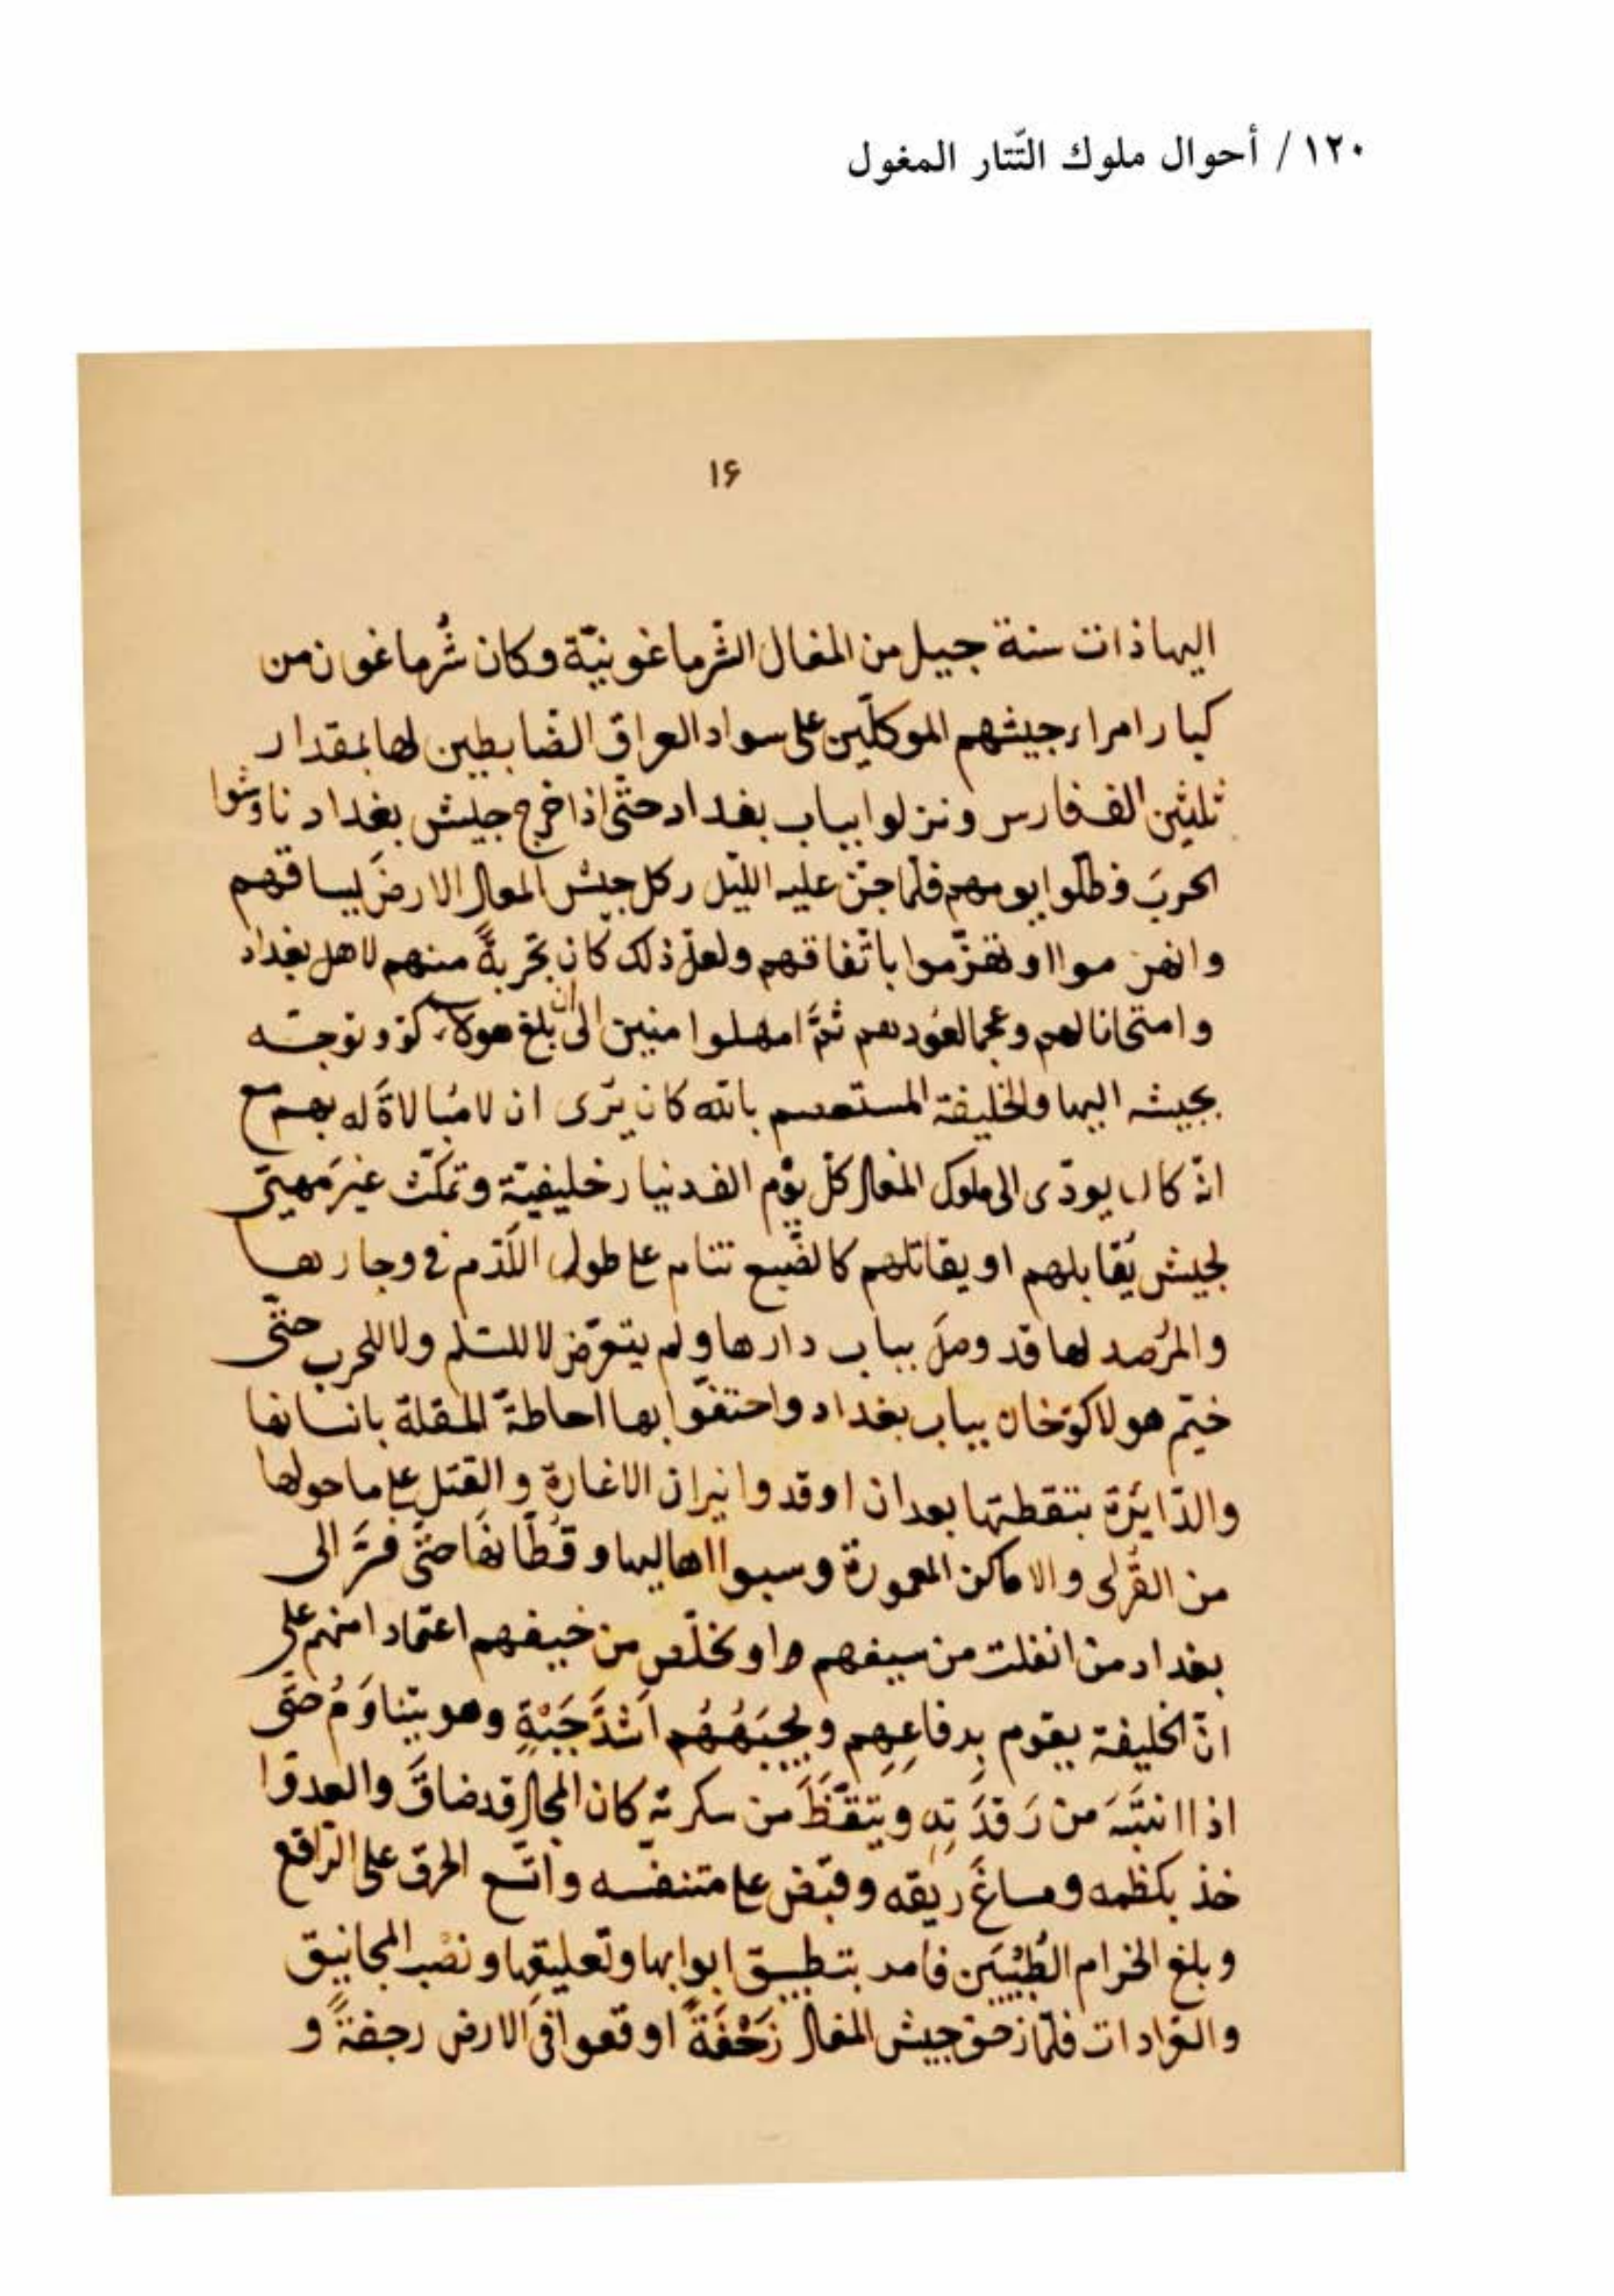 ١٢٠ / أحوال ملوك التّتار المغول
١۶
اليها ذات سنة جيل من المغال الشّرماغونيّة وكان شُرماغون من
كبار امراء جيشهم الموكلّين على سواد العراق الضّابطين لها بمقدار
ثلثين الف فارس ونزلوا بباب بغداد حتّى اذا خرج جيش بغداد ناوشوا
الحربَ فظلّوا يومهم فلمّا جنّ عليه اللّيل ركل جيش المغال الارضَ بساقهم
وانهزموا او تهزّموا باتّفاقهم ولعلّ ذلك كان تجربةً منهم لاهل بغداد
وامتحانا لهم وعجما لعُودهم ثمَّ امهلوا منين الى ان بلغ هولاكو وتوجّه
بجيشه اليها والخليفة المستعصم بالله كان يَرى ان لا مُبالاةَ له بهم مع
انّه كان يودّى الى ملوك المغال كلّ يوم الف دنيار خليفيّة وتمكّث غيرَ مهيّئ
لجيش يُقابلهم او يقاتلهم كالضّبع تنام على طول اللّدم فى وجارها
والمرُصد لها قد وصلَ بباب دارها ولم يتعرّض لا للسّلم ولا للحرب حتّى
خيّم هولاكوخان بباب بغداد واحتفّوا بها احاطةَ المقلة بانسانها
والدّايرة بنقطتها بعد ان اوقدوا نيران الاغارة والقتل على ما حولها
من القُرى والاماكن المعمورة وسبوا اهاليها وقُطّانها حتّى فرَّ الى
بغداد من انفلت من سيفهم او تخلّص من خيفهم اعتمادا منهم على
انّ الخليفة يقوم بِدفاعِهِم ويجْبَهُهُم اَشدَّ جَبْهَةٍ وهو يتناوَمُ حتّى
اذا انتبَهَ من رَقدَتِهِ ويتقّظَ من سكرته كان المجال قد ضاقَ والعدوّ ا
خذ بكظمه ومساغَ ريقه وقبّض على متنفّسه واتّسع الخرق على الرّاقع
وبلغ الحزام الطُّبْيَين فامر بتطبيق ابوابها وتعليقها ونصْب المجانيق
والعرّادات فلمّا زحف جيش المغال زَحْفَةً اوقعوا فى الارض رجفةً و